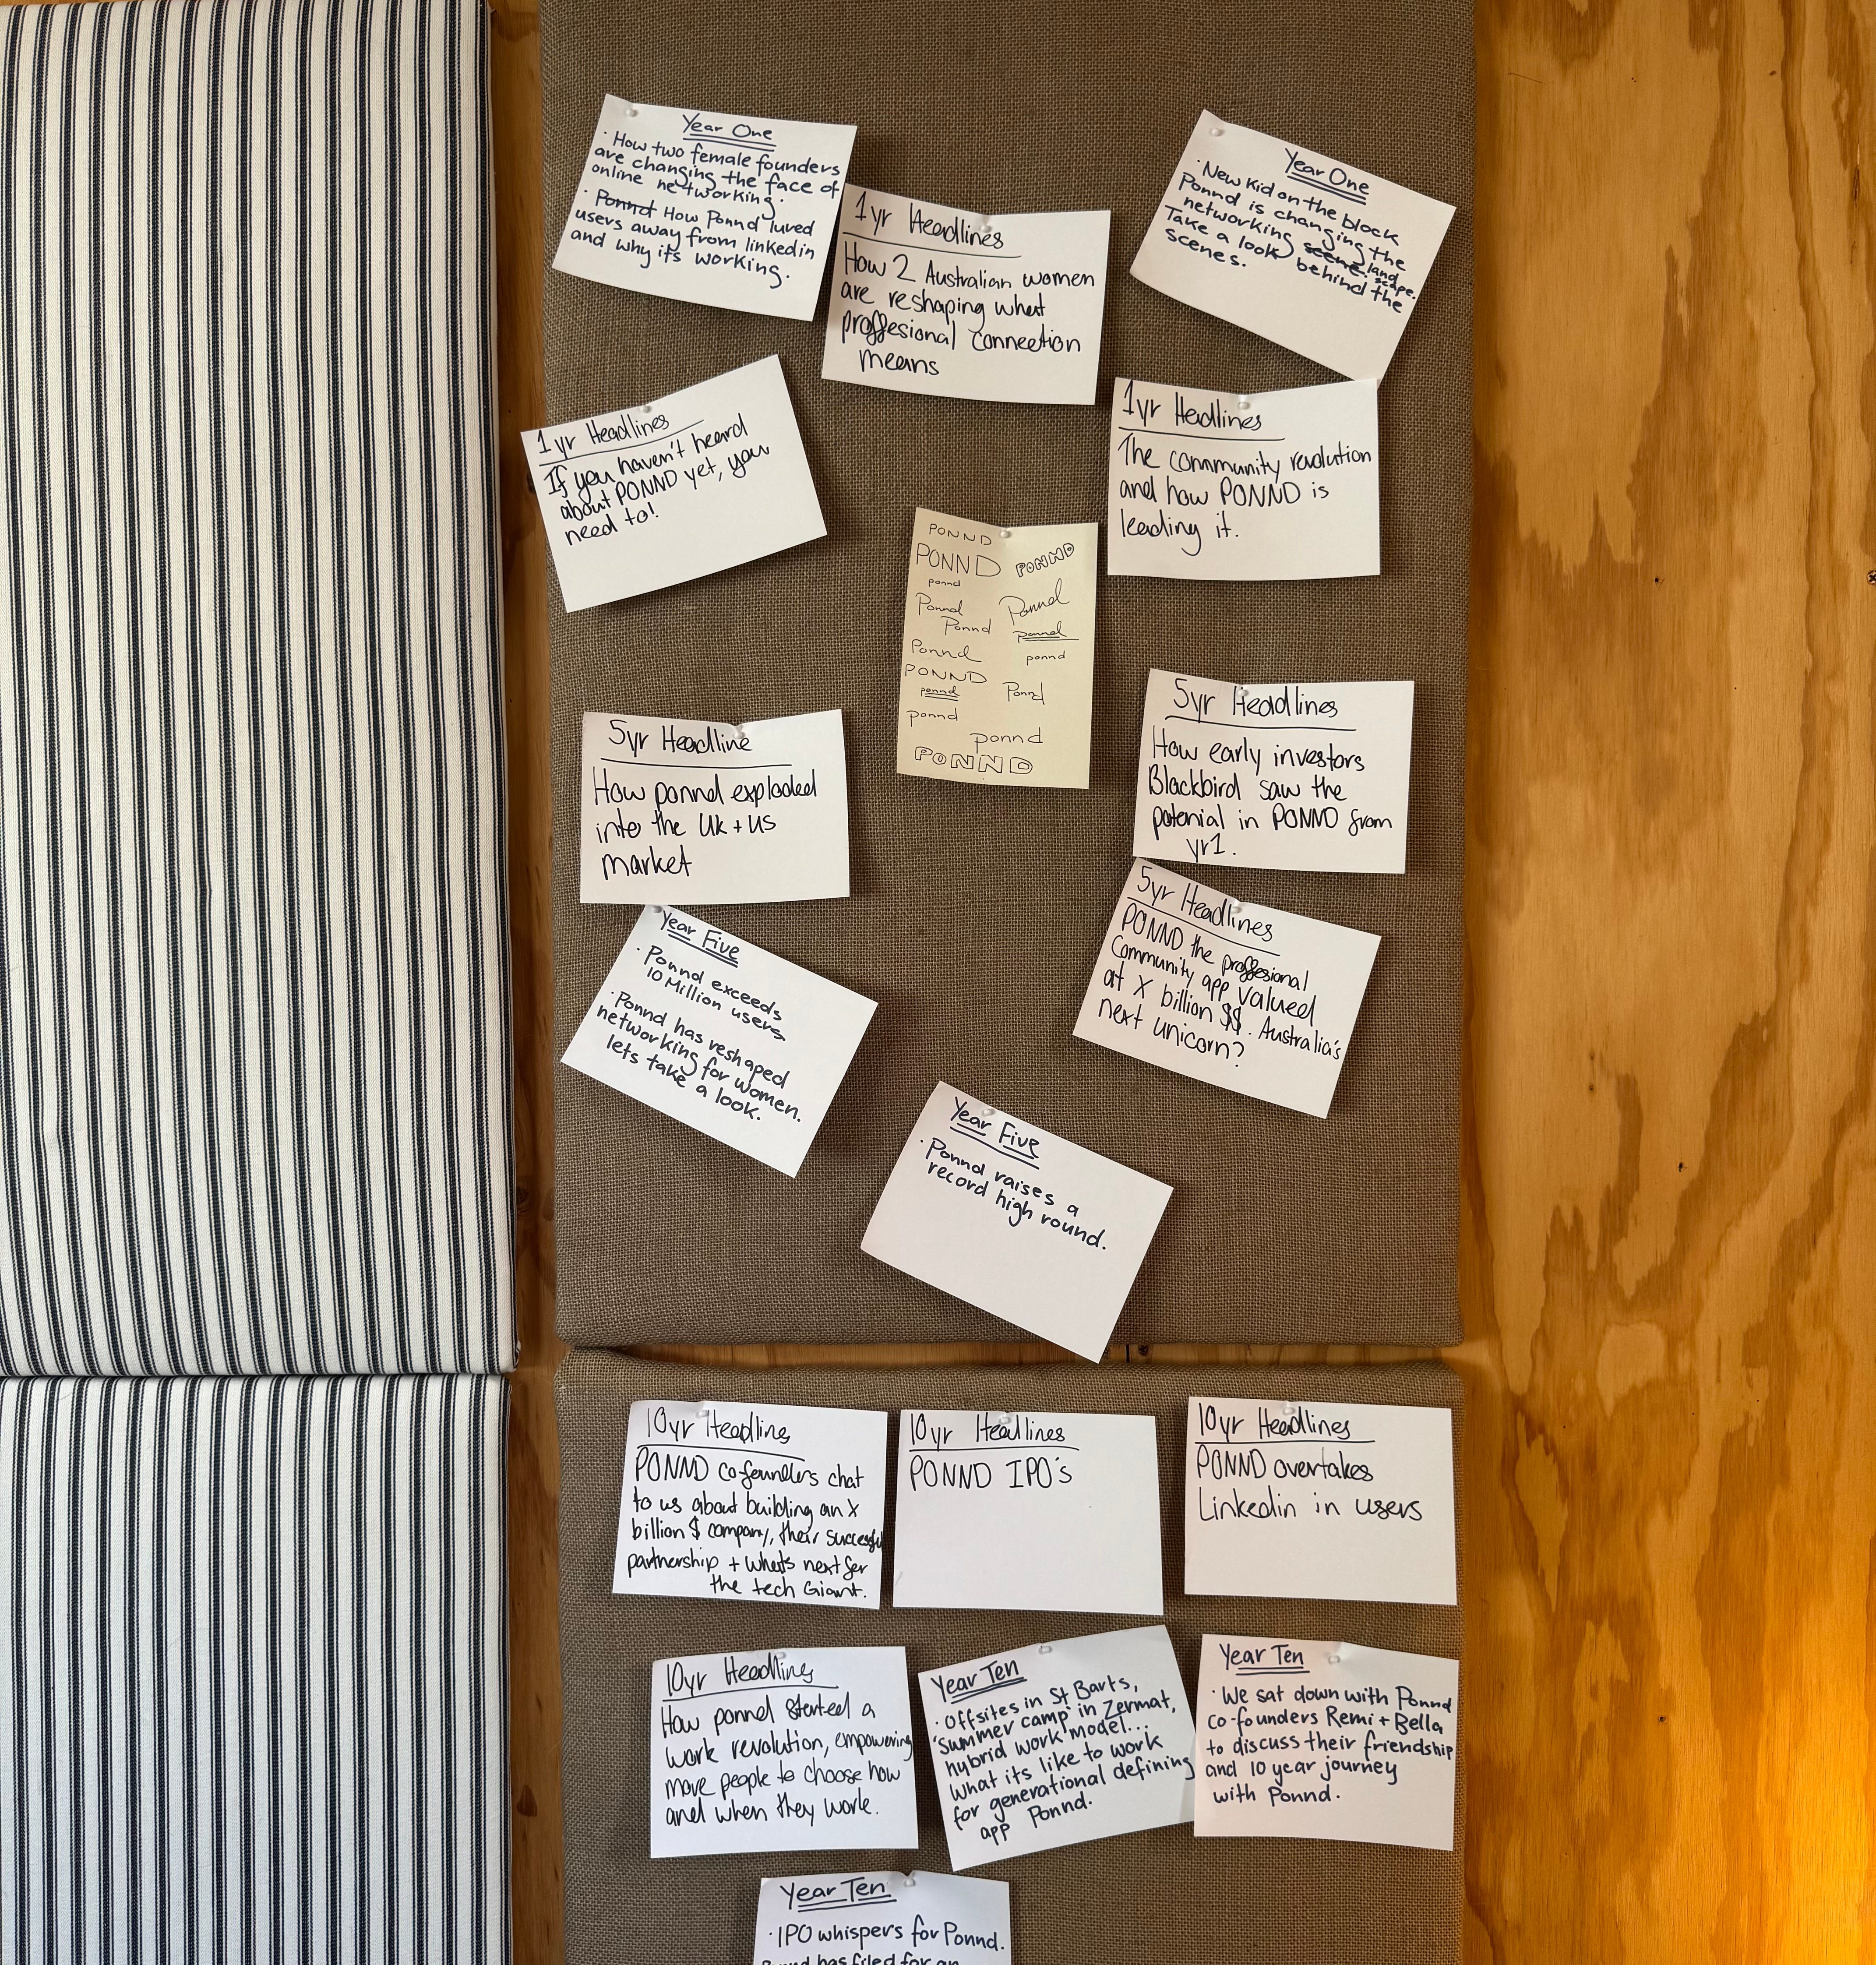 Year One
· How two female founders
are changing the face of
online networking.
· Ponnd How Ponnd lured
users away from linkedin
and why its working.
1yr Headlines
How 2 Australian women
are reshaping what
proffesional connection
means
Year One
· New kid on the block
Ponnd is changing the
networking scene. land
scape.
Take a look behind the
scenes.
1yr Headlines
If you haven't heard
about PONND yet, you
need to!
1yr Headlines
The community revolution
and how PONND is
leading it.
PONND
PONND PONND
ponnd
Ponnd Ponnd
Ponnd ponnd
Ponnd ponnd
PONND
ponnd Ponnd
ponnd
ponnd
PONND
5yr Headline
How ponnd exploded
into the UK + US
market
5yr Headlines
How early investors
Blackbird saw the
potenial in PONND from
yr1.
Year Five
· Ponnd exceeds
10 Million users
· Ponnd has reshaped
networking for women.
lets take a look.
5yr Headlines
PONND the proffesional
Community app valued
at X billion $$. Australia's
next unicorn?
Year Five
· Ponnd raises a
record high round.
10yr Headlines
PONND co-founders chat
to us about building an X
billion $ company, their successful
partnership + whats next for
the tech Giant.
10yr Headlines
PONND IPO's
10yr Headlines
PONND overtakes
Linkedin in users
10yr Headlines
How ponnd started a
work revolution, empowering
more people to choose how
and when they work.
Year Ten
· Offsites in St Barts,
'summer camp' in Zermat,
hybrid work model...
What its like to work
for generational defining
app Ponnd.
Year Ten
· We sat down with Ponnd
co-founders Remi + Bella
to discuss their friendship
and 10 year journey
with Ponnd.
Year Ten
· IPO whispers for Ponnd.
Ponnd has filed for an